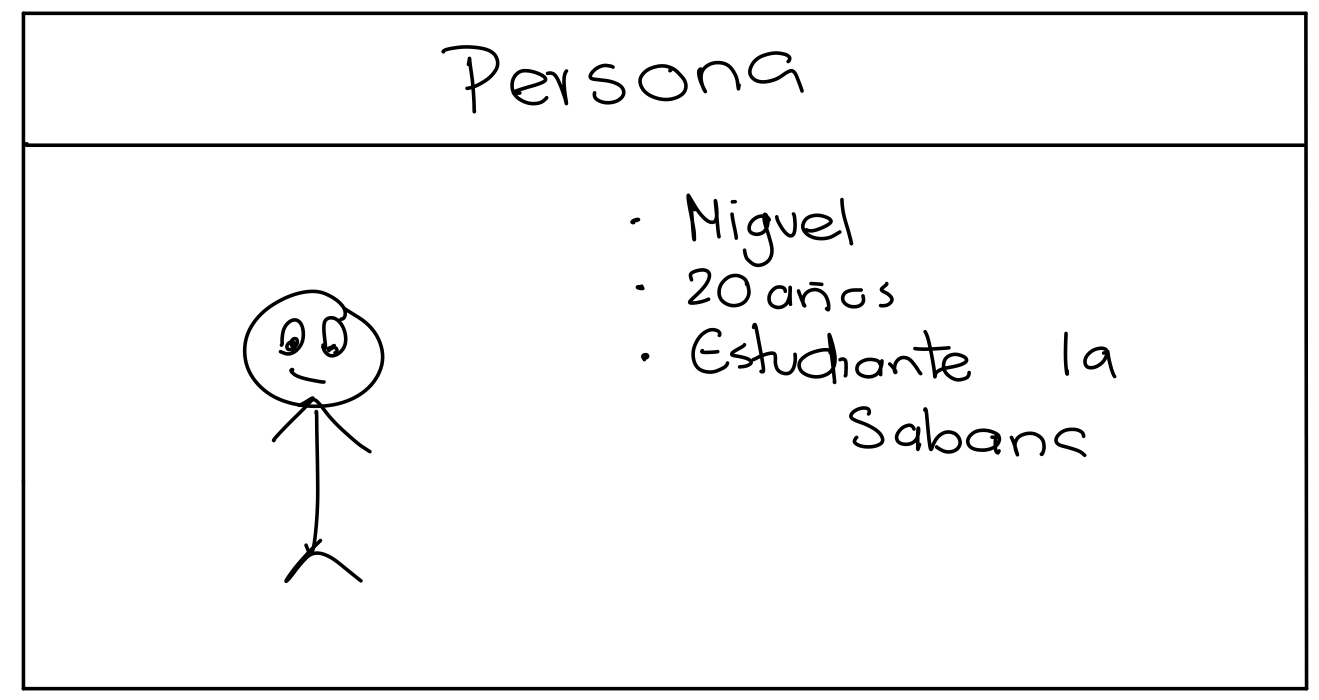 Persona
· Miguel
· 20 años
· Estudiante la
Sabana